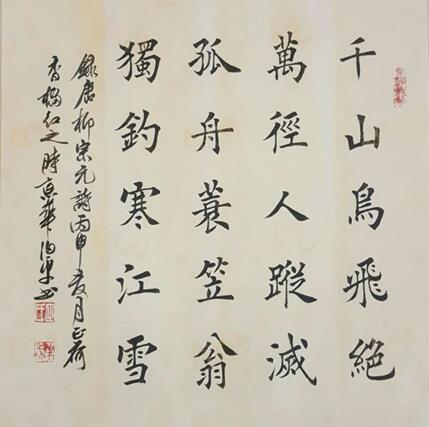 千山鳥飛絕
萬徑人蹤滅
孤舟蓑笠翁
獨釣寒江雪
錄唐柳宗元詩丙申夏月正荷
香榴红之時京華